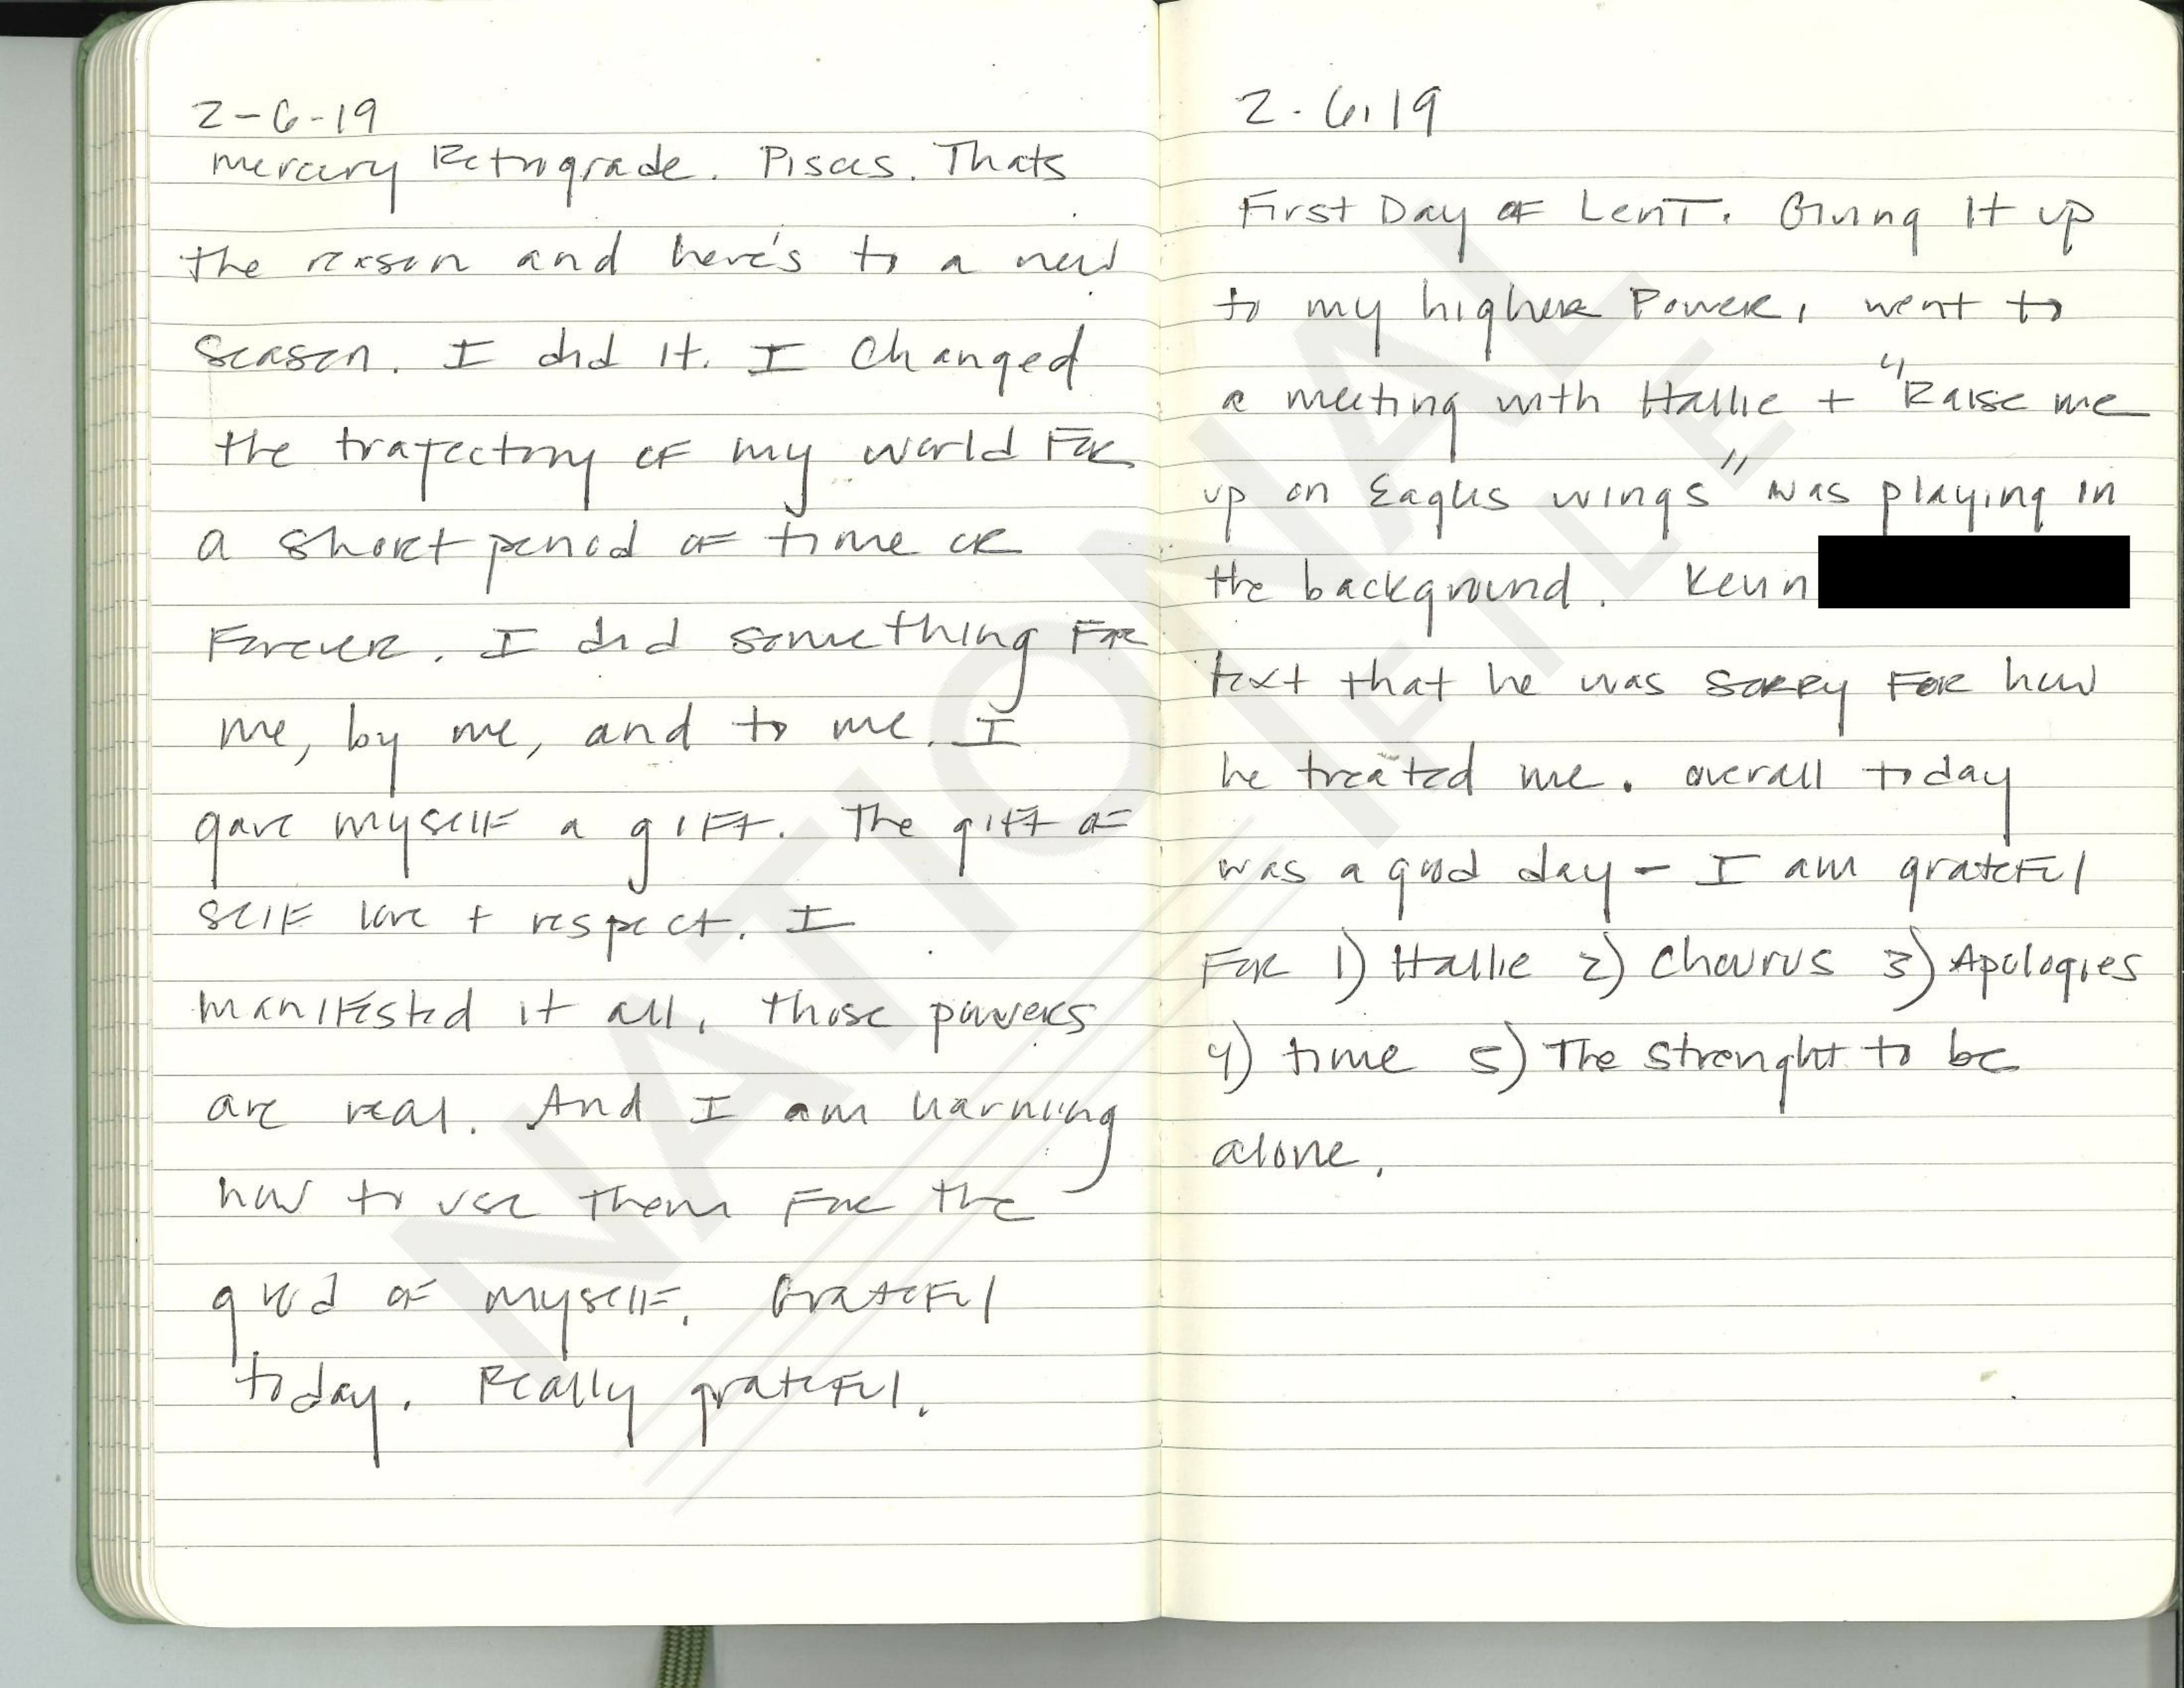 2-6-19
mercury Retrograde. Pisces. Thats
the reason and here's to a new
season. I did it. I changed
the trajectory of my world For
a short period of time or
Forever. I did something For
me, by me, and to me. I
gave myself a gift. The gift of
self love + respect. I
manifested it all. Those powers
are real. And I am learning
how to use them For the
good of myself. Grateful
today. Really grateful.
2.6.19
First Day of Lent. Giving it up
to my higher Power, went to
a meeting with Hallie + "Raise me
up on Eagles wings" was playing in
the background. Kevin
text that he was sorry For how
he treated me. overall today
was a good day - I am grateful
For 1) Hallie 2) Chourus 3) Apologies
4) time 5) The strenght to be
alone.
NATIONAL
FILE